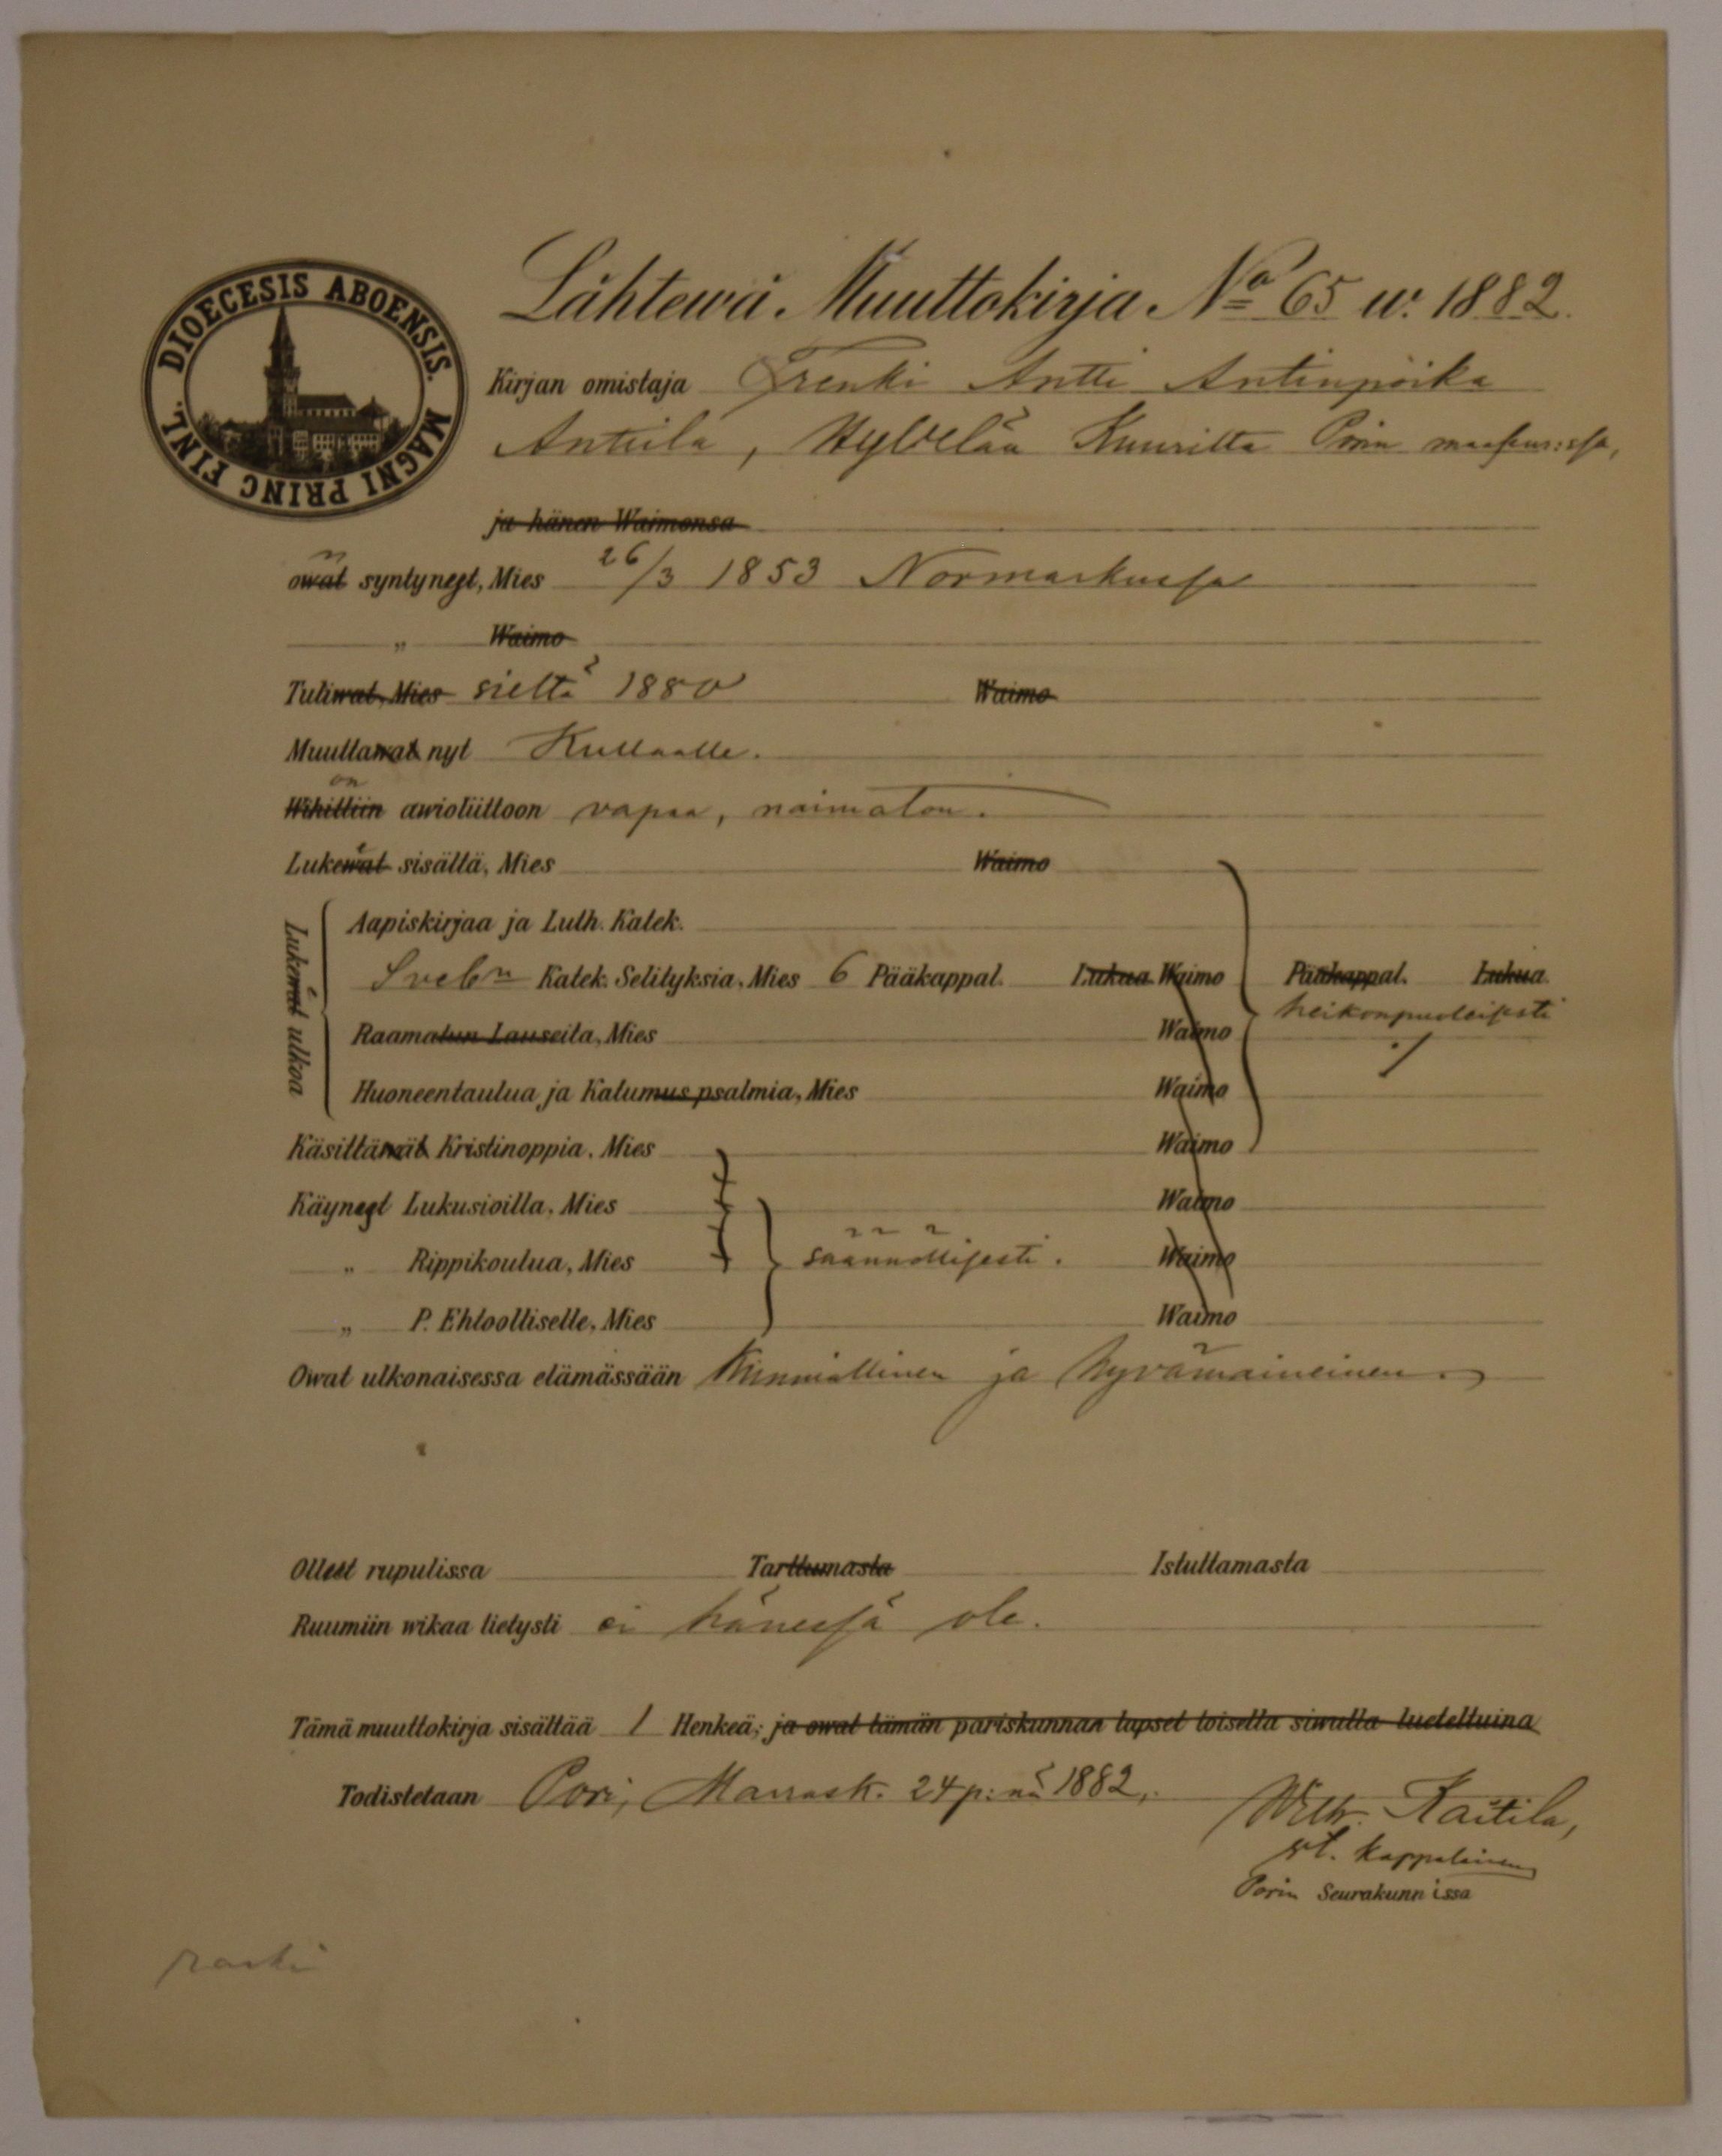 DIOECESIS ABOENSIS. MAGNI PRINC FINL.
Lähtewä Muuttokirja No 65 w. 1882.
Kirjan omistaja Trenki Antti Antinpoika
Anttila, Hyvelän Kuurilta Porin maaseur:ssa,
ja hänen Waimonsa
n
owat syntyneet, Mies 26/3 1853 Normarkussa
" Waimo
Tuliwat, Mies sieltä 1880 Waimo
Muuttawat nyt Kullaalle.
on
Wihittiin awioliittoon vapaa, naimaton.
Lukewat sisältä, Mies Waimo
Lukewat ulkoa
Aapiskirjaa ja Luth. Katek.
Sveb:n Katek. Selityksiä, Mies 6 Pääkappal. Lukua Waimo Pääkappal. Lukua.
heikonpuoleisesti
Raamatun Lauseita, Mies Waimo
Huoneentaulua ja Katumus psalmia, Mies Waimo
Käsittäwät Kristinoppia, Mies Waimo
Käyneet Lukusioilla, Mies Waimo
" Rippikoulua, Mies säännöllisesti. Waimo
" P. Ehtoolliselle, Mies Waimo
Owat ulkonaisessa elämässään kunniallinen ja hyvämaineinen.
Olleet rupulissa Tarttumasta Istuttamasta
Ruumiin wikaa tietysti ei hänessä ole.
Tämä muuttokirja sisältää 1 Henkeä; ja owat tämän pariskunnan lapset toisella siwulla lueteltuina
Todistetaan Pori, Marrask. 24 p:nä 1882,
Wilh. Kaitila,
vt. kappalainen
Porin Seurakunnissa